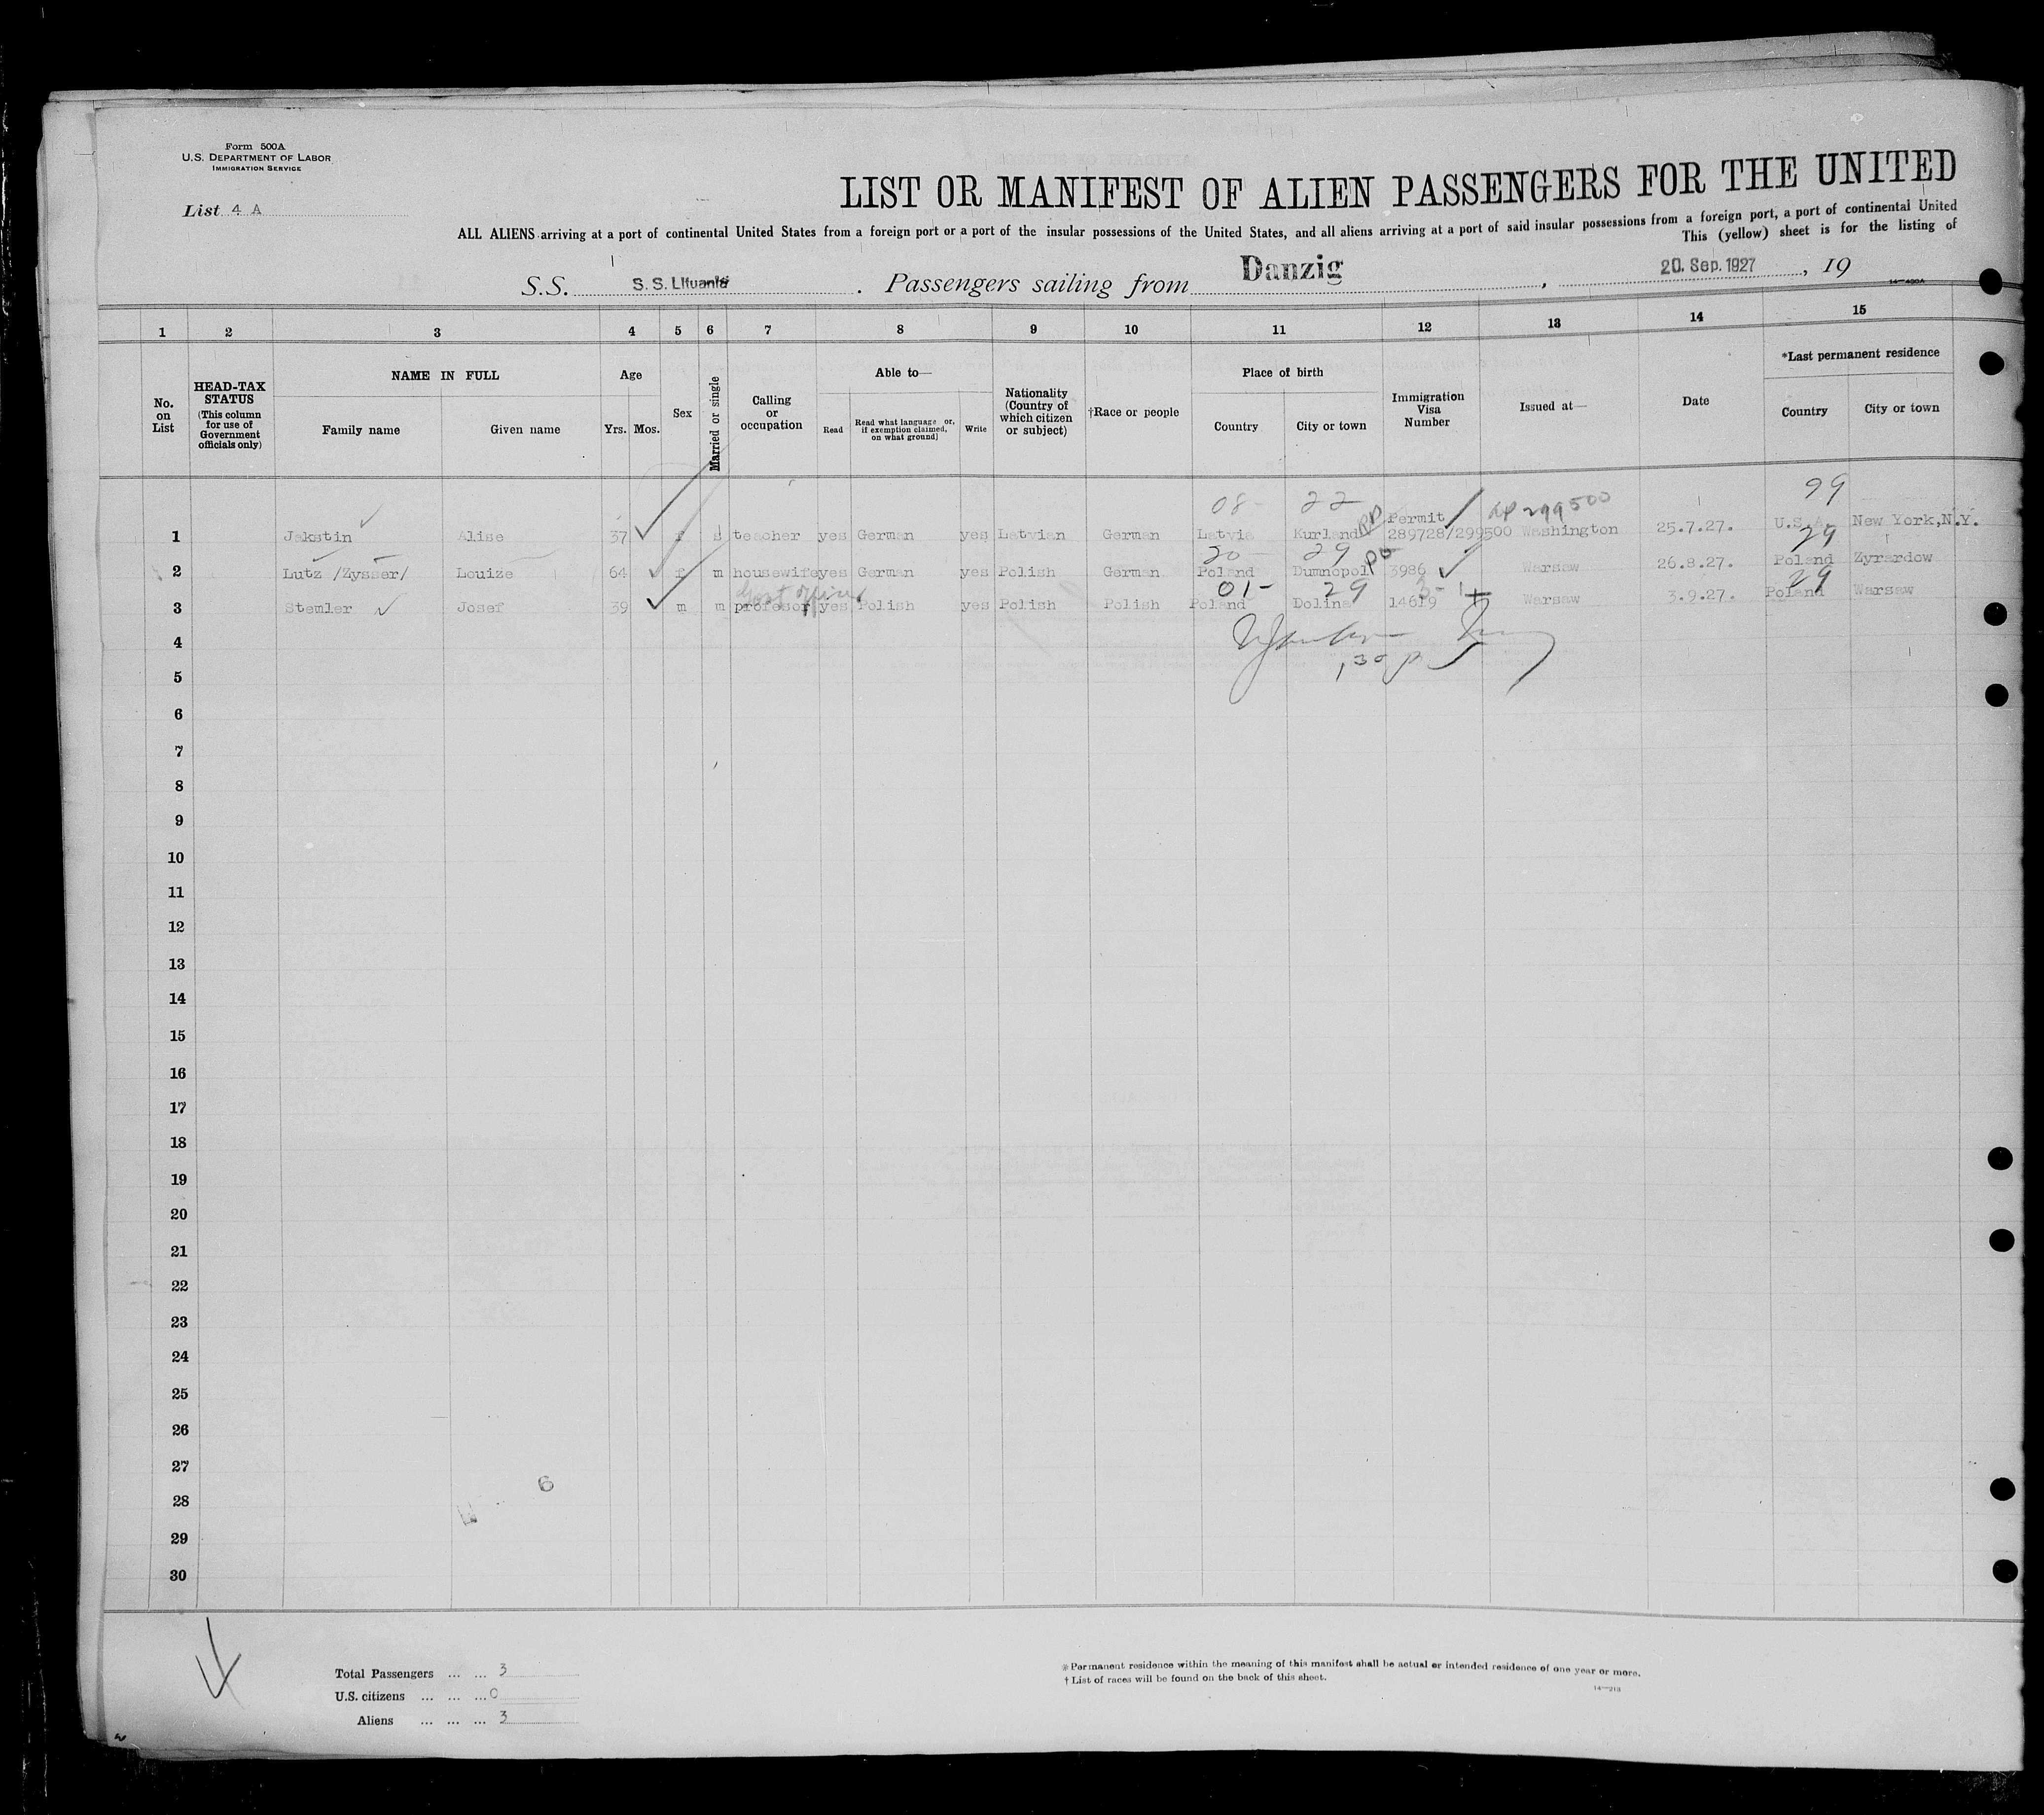 Form 500A
U.S. DEPARTMENT OF LABOR
IMMIGRATION SERVICE
List 4 A
LIST OR MANIFEST OF ALIEN PASSENGERS FOR THE UNITED
ALL ALIENS arriving at a port of continental United States from a foreign port or a part of the insular possessions of the United States, and all aliens arriving at a port of said insular possessions from a foreign port, a port of continental United
This (yellow) sheet is for the listing of
S.S. S. S. Lituania. Passengers sailing from Danzig, 20. Sep. 1927, 19
14—400A
1 2 3 4 5 6 7 8 9 10 11 12 13 14 15
No. on List
HEAD-TAX STATUS (This column for use of Government officials only)
NAME IN FULL
Family name Given name
Age
Yrs. Mos.
Sex
Married or single
Calling or occupation
Able to—
Read Read what language or, if exemption claimed, on what ground) Write
Nationality (Country of which citizen or subject)
†Race or people
Place of birth
Country City or town
Immigration Visa Number
Issued at—
Date
*Last permanent residence
Country City or town
08- 22 99
Permit 299500
1 Jakstin Alise 37 f s teacher yes German yes Latvian German Latvia Kurland 289728/299500 Washington 25.7.27. U.S.A. New York,N.Y.
20- 29 29
2 Lutz /Zysser/ Louize 64 f m housewife yes German yes Polish German Poland Dumnopol 3986 Warsaw 26.8.27. Poland Zyrardow
01- 29 29
3 Stemler Josef 39 m m profesor yes Polish yes Polish Polish Poland Dolina 14619 Warsaw 3.9.27. Poland Warsaw
4
5
6
7
8
9
10
11
12
13
14
15
16
17
18
19
20
21
22
23
24
25
26
27
6
28
29
30
Total Passengers ... ... 3
U.S. citizens ... ... ... 0
Aliens ... ... ... 3
* Permanent residence within the meaning of this manifest shall be actual or intended residence of one year or more.
† List of races will be found on the back of this sheet.
14—213